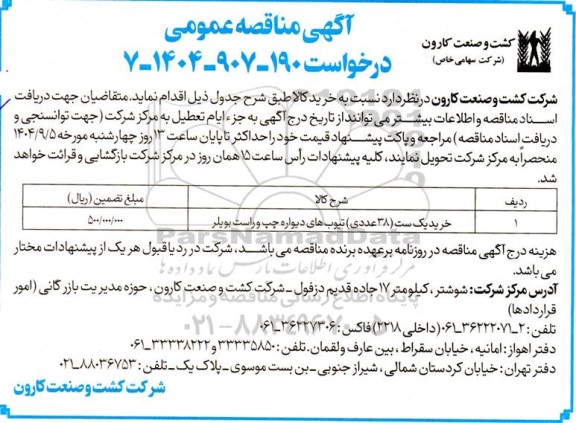 آگهی مناقصه عمومی
درخواست ۱۹۰-۹۰۷-۱۴۰۴-۷
کشت و صنعت کارون
(شرکت سهامی خاص)
شرکت کشت و صنعت کارون در نظر دارد نسبت به خرید کالا طبق شرح جدول ذیل اقدام نماید. متقاضیان جهت دریافت
اسناد مناقصه و اطلاعات بیشتر می توانند از تاریخ درج آگهی به جزء ایام تعطیل به مرکز شرکت (جهت توانسنجی و
دریافت اسناد مناقصه) مراجعه و پاکت پیشنهاد قیمت خود را حداکثر تا پایان ساعت ۱۳ روز چهارشنبه مورخه ۱۴۰۴/۹/۵
منحصراً به مرکز شرکت تحویل نمایند، کلیه پیشنهادات رأس ساعت ۱۵ همان روز در مرکز شرکت بازگشایی و قرائت خواهد
شد.
ردیف شرح کالا مبلغ تضمین (ریال)
۱ خرید یک ست (۳۸ عددی) تیوب های دیواره چپ و راست بویلر ۵۰۰/۰۰۰/۰۰۰
هزینه درج آگهی مناقصه در روزنامه برعهده برنده مناقصه می باشد، شرکت در رد یا قبول هر یک از پیشنهادات مختار
می باشد.
آدرس مرکز شرکت: شوشتر، کیلومتر ۱۷ جاده قدیم دزفول - شرکت کشت و صنعت کارون، حوزه مدیریت بازرگانی (امور
قراردادها)
تلفن: ۲-۳۶۲۲۲۰۷۱-۰۶۱ (داخلی ۲۲۱۸) فاکس: ۳۶۲۲۷۳۰۶-۰۶۱
دفتر اهواز: امانیه، خیابان سقراط، بین عارف و لقمان. تلفن: ۳۳۳۳۵۸۵۰ و ۳۳۳۳۸۲۲۲-۰۶۱
دفتر تهران: خیابان کردستان شمالی، شیراز جنوبی-بن بست موسوی-پلاک یک-تلفن: ۸۸۰۳۶۷۵۳-۰۲۱
شرکت کشت و صنعت کارون
ParsNamadData
مرکز فرآوری اطلاعات پارس نماد داده ها
پایگاه اطلاع رسانی مناقصه و مزایده
۰۲۱-۸۸۳۴۹۶۷۰